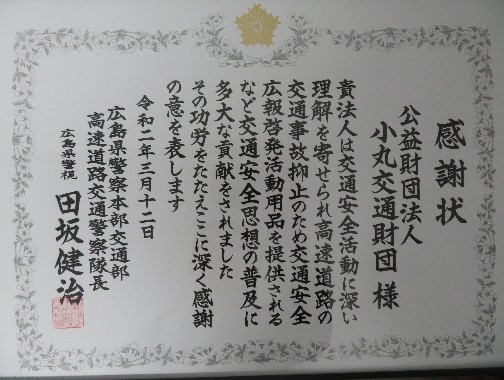 感謝状
公益財団法人
小丸交通財団 様
貴法人は交通安全活動に深い
理解を寄せられ高速道路の
交通事故抑止のため交通安全
広報啓発活動用品を提供される
など交通安全思想の普及に
多大な貢献をされました
その功労をたたえここに深く感謝
の意を表します
令和二年三月十二日
広島県警察本部交通部
高速道路交通警察隊長
広島県警視 田坂健治